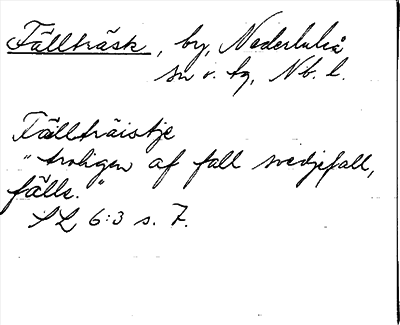 Fällträsk, by, Nederluleå
sn o. tg, Nb. l.
Fällträistje
"troligen af fall svedjefall,
fälle."
SL 6:3 s. 7.